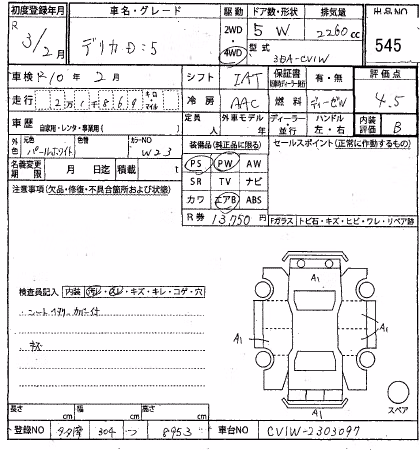 初度登録年月 車名・グレード 駆動 ドア数・形状 排気量 出品NO
R 3/2月 デリカD:5 2WD 4WD 5 W 2260cc 545
型式 3DA-CV1W
車検 R10年2月 シフト IAT 保証書 有・無 評価点
走行 21869 キロ マイル 冷房 AAC 燃料 ディーゼル 4.5
車歴 自家用・レンタ・事業用( ) 定員 人 外車モデル 年 ディーラー 並行 ハンドル 左・右 内装評価 B
外色 元色 パールホワイト 色替 カラーNO W23 装備品(純正品に限る) セールスポイント(正常に動作するもの)
名義変更期限 月 日迄 積載 t PS PW AW
注意事項(欠品・修復・不具合箇所および状態) SR TV ナビ
カワ エアB ABS
R券 13,750 円 Fガラス トビ石・キズ・ヒビ・ワレ・リペア跡
A1
検査員記入 内装 汚レ・スレ・キズ・キレ・コゲ・穴
A1 A1
A1
スペア
長さ cm 幅 cm 高さ cm
登録NO 304 つ 8953 車台NO CV1W-2303097